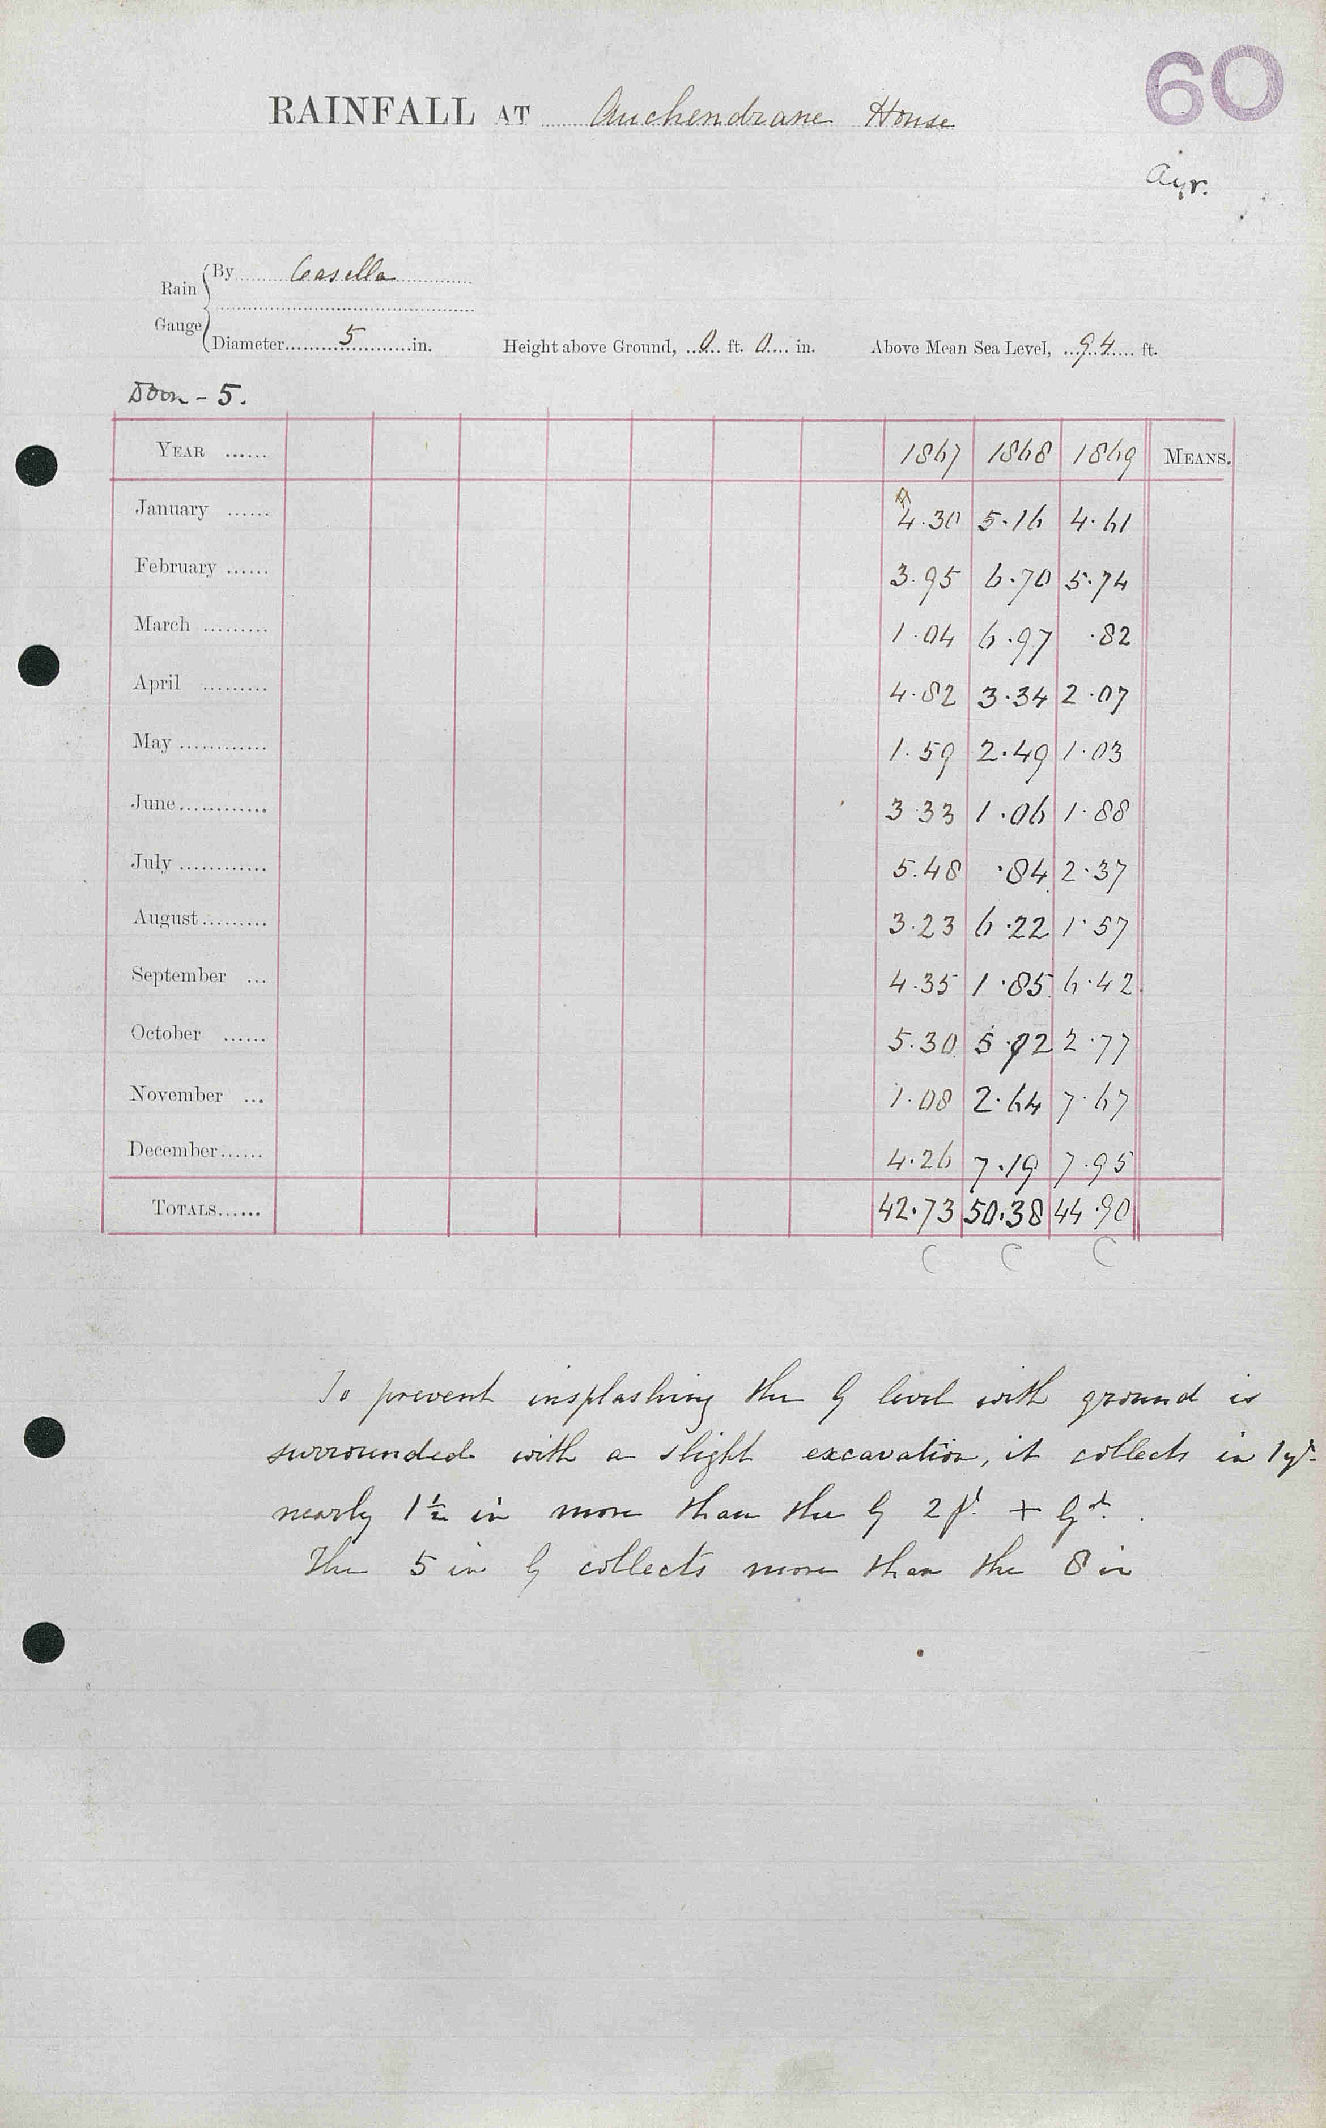 60
RAINFALL AT Auchendrane House
Ayr.
Rain Gauge
By Casella
Diameter 5 in. Height above Ground, 0 ft. 0 in. Above Mean Sea Level, 94 ft.
Doon - 5.
YEAR ...... 1867 1868 1869 MEANS.
January ...... 4.30 5.16 4.61
February ...... 3.95 6.70 5.74
March ......... 1.04 6.97 .82
April ......... 4.82 3.34 2.07
May ............ 1.59 2.49 1.03
June ............ 3.33 1.06 1.88
July ............ 5.48 .84 2.37
August ......... 3.23 6.22 1.57
September ... 4.35 1.85 6.42
October ...... 5.30 5.92 2.77
November ... 1.08 2.64 7.67
December ...... 4.26 7.19 7.95
TOTALS ...... 42.73 50.38 44.90
C C C
To prevent insplashing the G level with ground is
surrounded with a slight excavation, it collects in 1 yr
nearly 1½ in more than the G 2 ft + Gd.
The 5 in G collects more than the 8 in